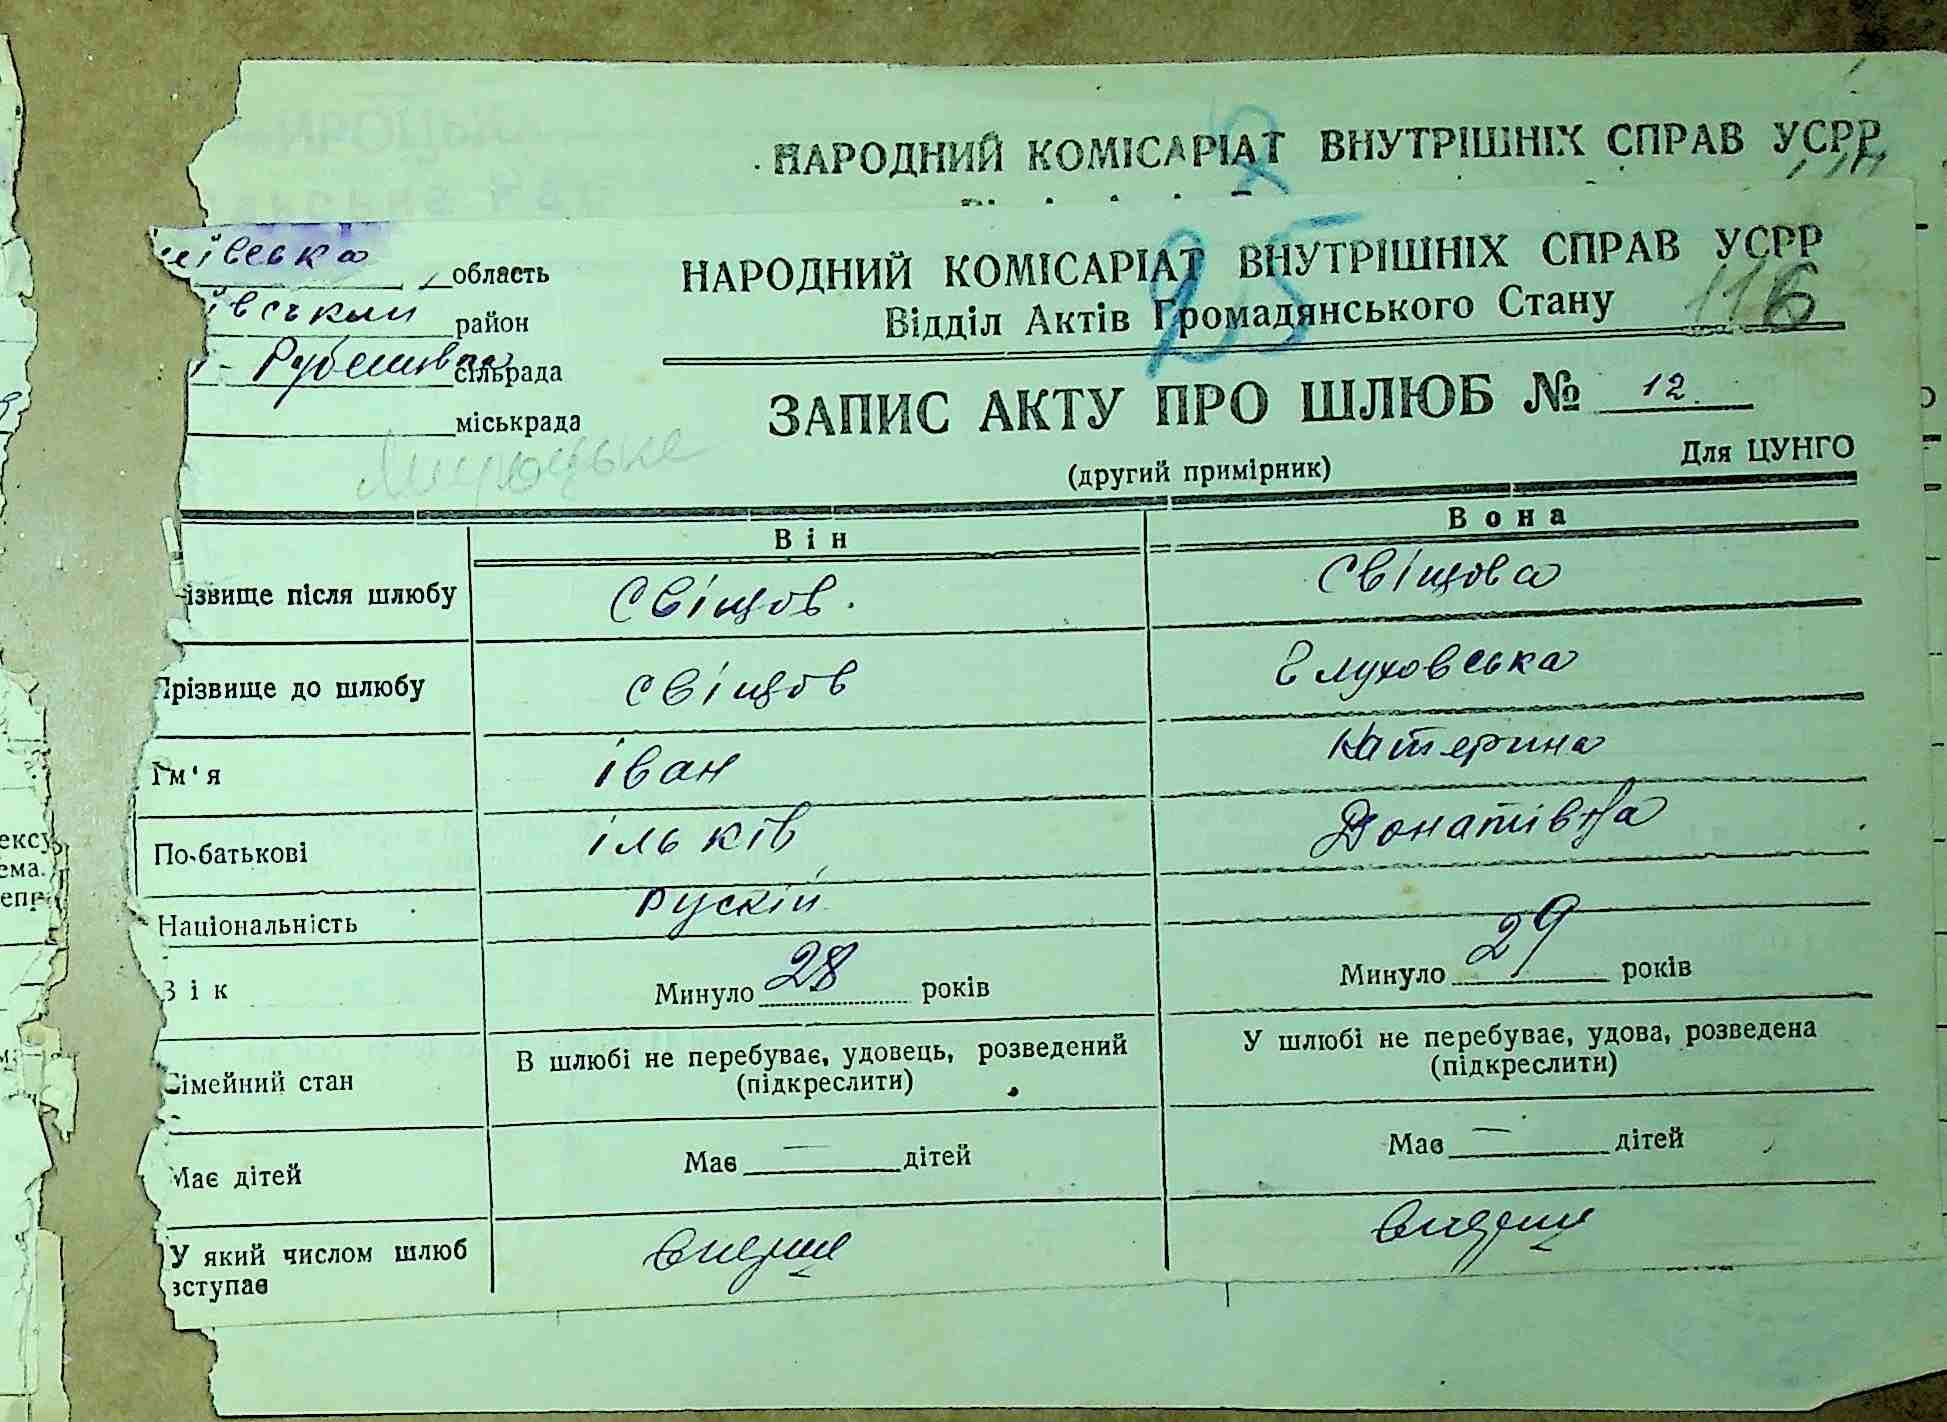 НАРОДНИЙ КОМІСАРІАТ ВНУТРІШНІХ СПРАВ УСРР
ївська область
ївськии район
Рубежівка сільрада
міськрада
Мироцьке
НАРОДНИЙ КОМІСАРІАТ ВНУТРІШНІХ СПРАВ УСРР
Відділ Актів Громадянського Стану
25
116
ЗАПИС АКТУ ПРО ШЛЮБ № 12.
(другий примірник)
Для ЦУНГО
Він Вона
ізвище після шлюбу Свіщов. Свіщова
Прізвище до шлюбу Свіщов Глуховська
Ім'я Іван Катерина
По-батькові Ільків Донатівна
Національність Рускій
Вік Минуло 28 років Минуло 29 років
Сімейний стан В шлюбі не перебуває, удовець, розведений (підкреслити) У шлюбі не перебуває, удова, розведена (підкреслити)
Має дітей Має — дітей Має — дітей
У який числом шлюб вперше вперше
вступає